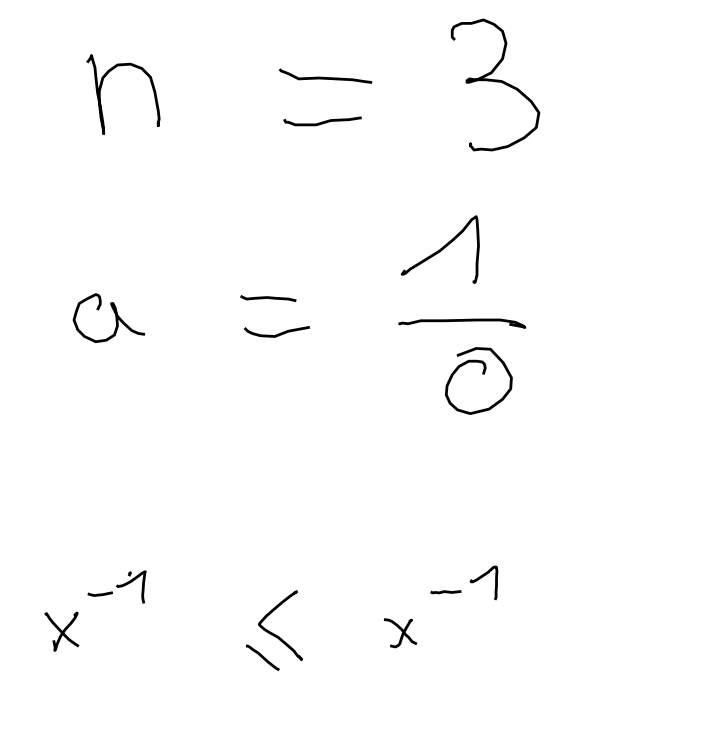 n = 3
a = 1/0
x⁻¹ ≤ x⁻¹